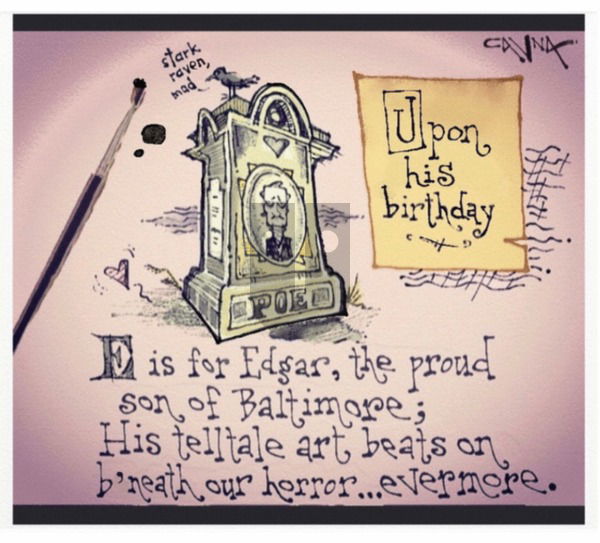 stark
raven,
mad
CAVNA
Upon
his
birthday
POE
E is for Edgar, the proud
son of Baltimore;
His telltale art beats on
b'neath our horror...evermore.